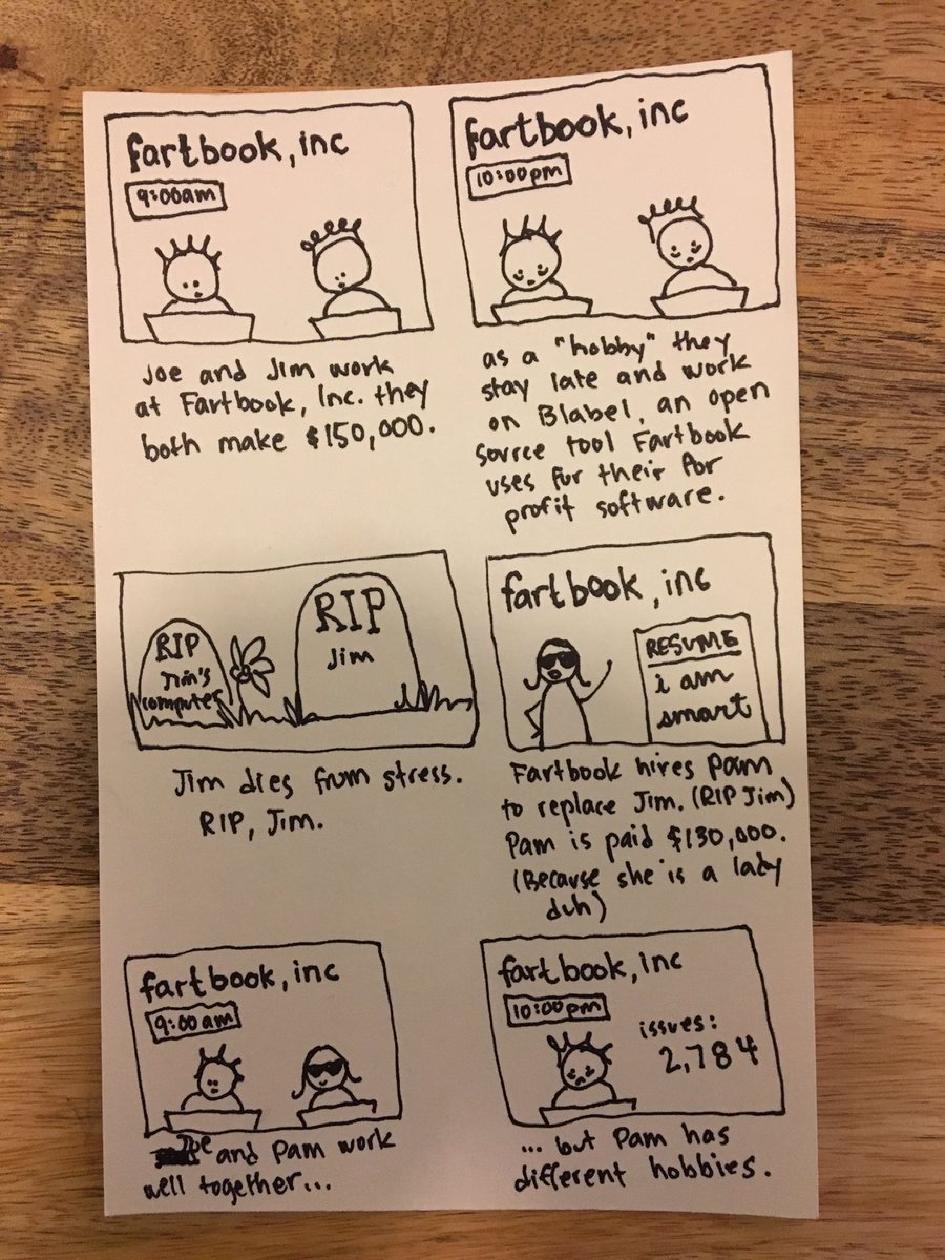 fartbook, inc
9:00am
Joe and Jim work
at Fartbook, Inc. they
both make $150,000.
fartbook, inc
10:00pm
as a "hobby" they
stay late and work
on Blabel, an open
source tool Fartbook
uses for their for
profit software.
RIP
Jim's
computer
RIP
Jim
Jim dies from stress.
RIP, Jim.
fartbook, inc
RESUME
i am
smart
Fartbook hires Pam
to replace Jim. (RIP Jim)
Pam is paid $130,000.
(Because she is a lady
duh)
fartbook, inc
9:00 am
Joe and Pam work
well together...
fartbook, inc
10:00pm
issues:
2,784
... but Pam has
different hobbies.